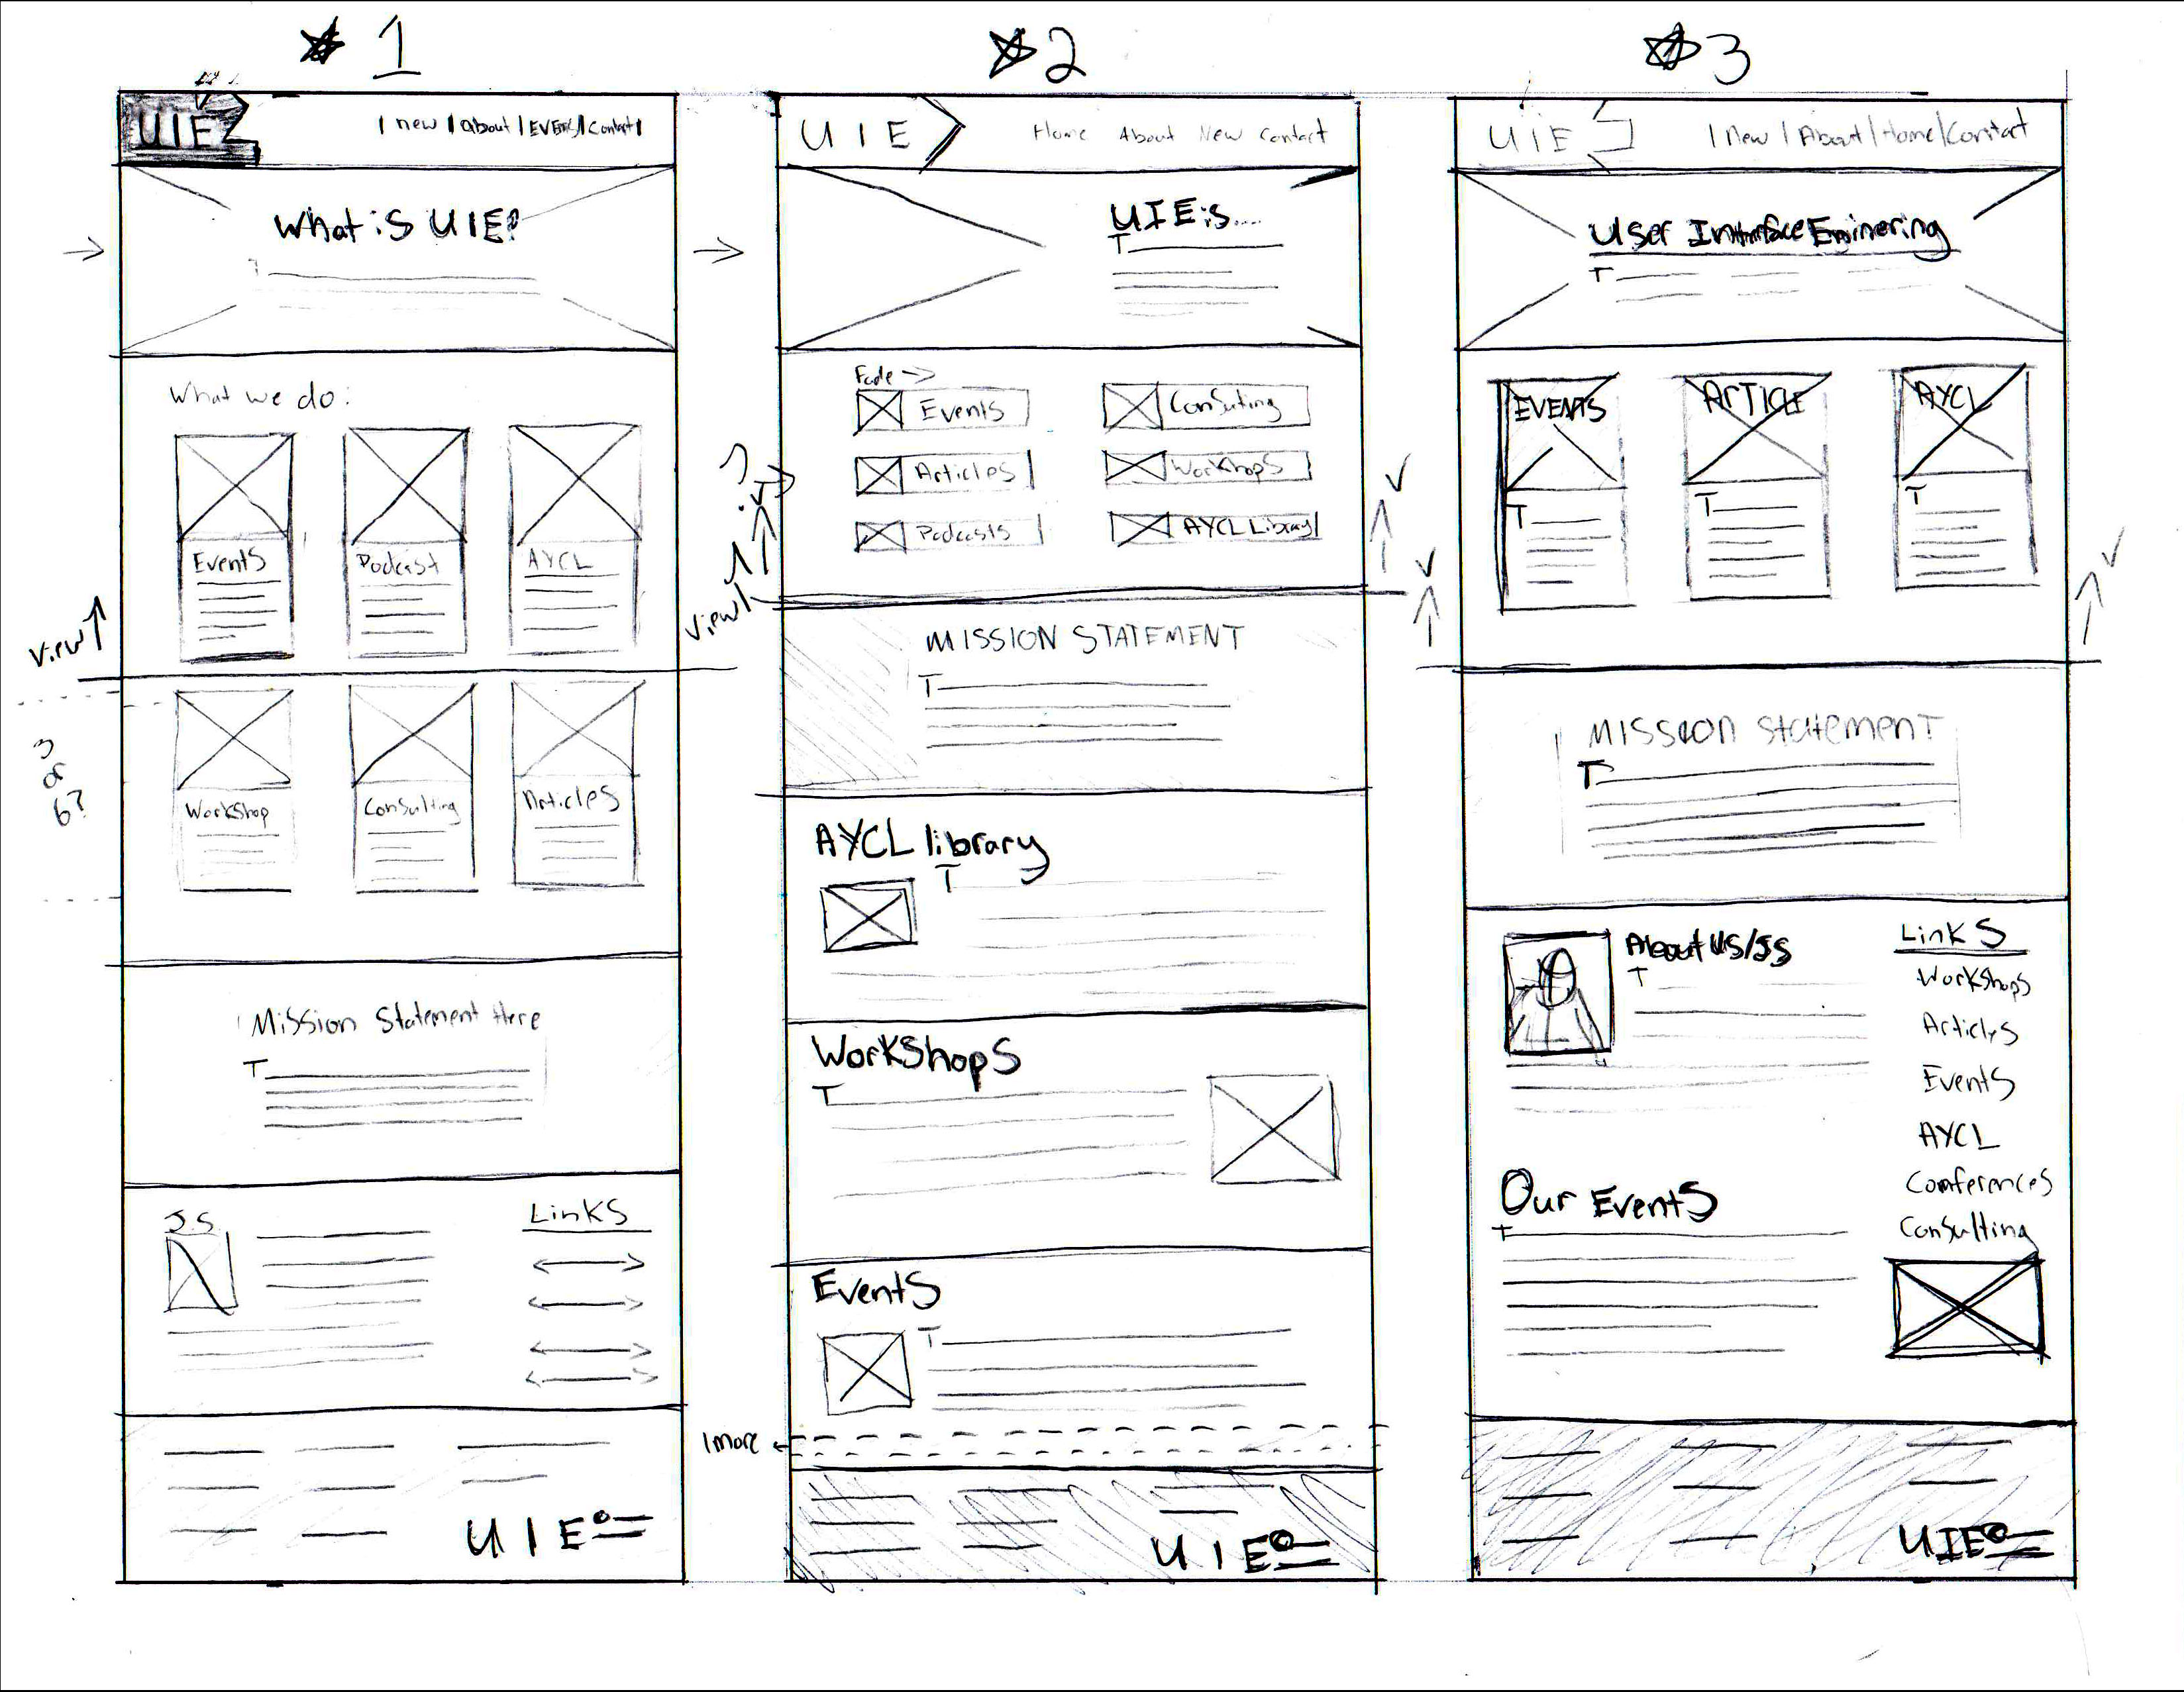 1
UIE
| new | About | EVEnts | Contact |
What is UIE?
What we do:
Events Podcast AYCL
View
3
or
6?
Workshop Consulting Articles
Mission Statement Here
T
J.S. Links
UIE
2
UIE Home About New Contact
UIE is....
T
Fade
Events Consuting
Articles Workshops
Podcasts AYCL Library
View
MISSION STATEMENT
T
AYCL library
T
Workshops
T
Events
T
1 more
UIE
3
UIE | New | About | Home | Contact
User Interface Enginering
T
EVENTS ARTICLE AYCL
T T T
V
V
V
MISSION Statement
T
About US/JS
T
Links
Workshops
Articles
Events
AYCL
Comferences
Consulting
Our Events
T
UIE